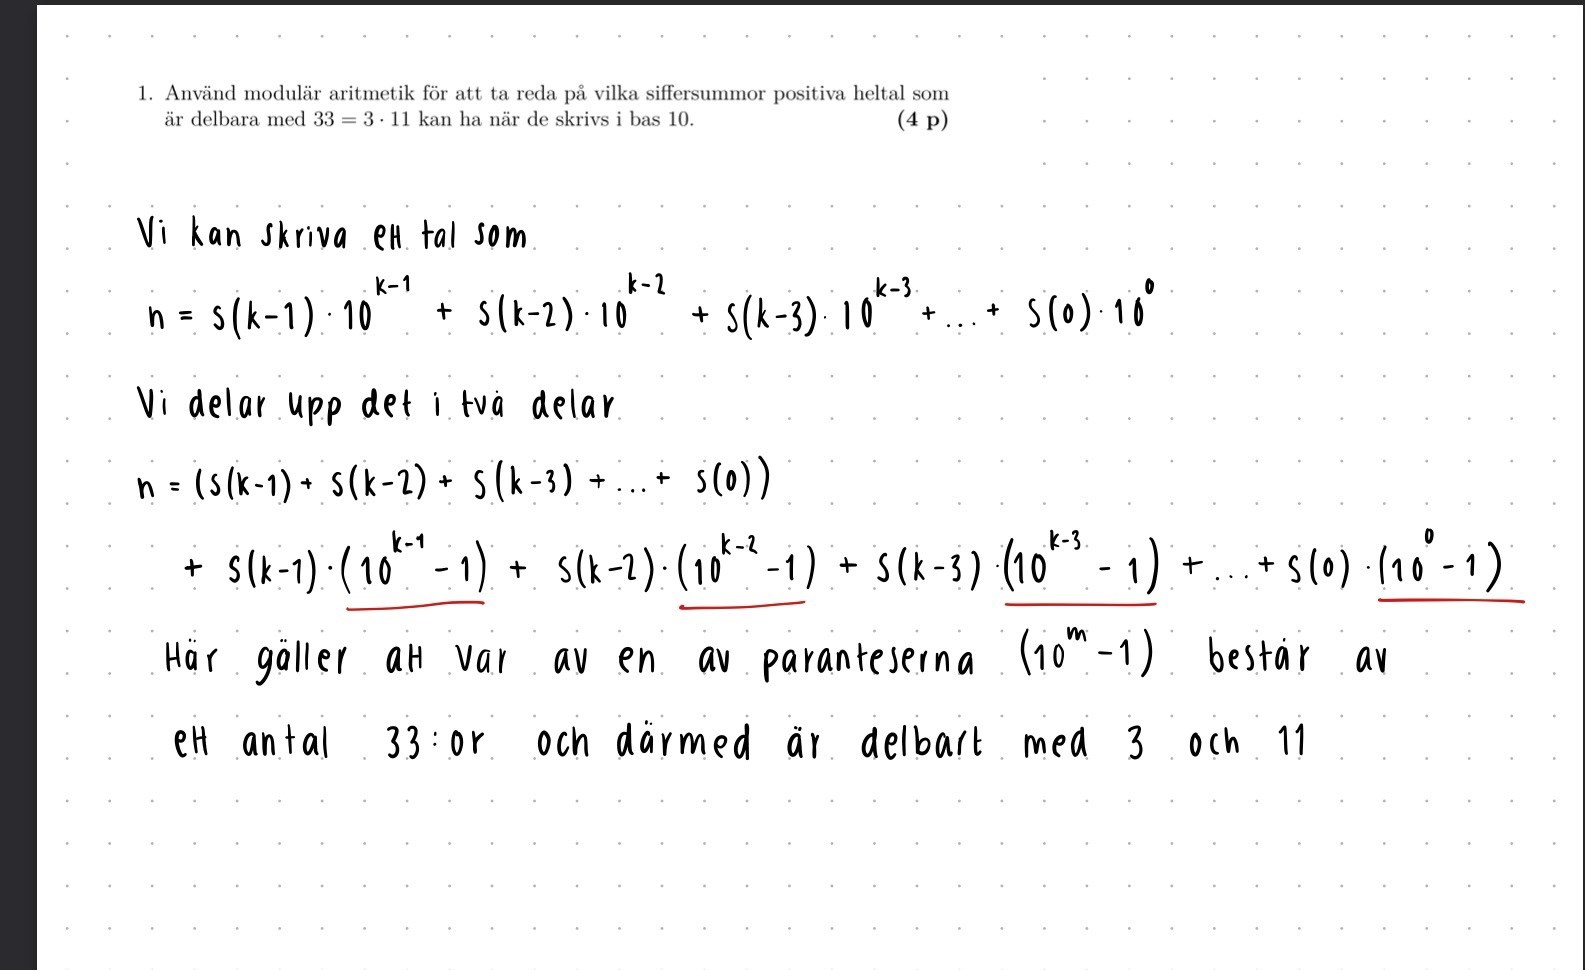 1. Använd modulär aritmetik för att ta reda på vilka siffersummor positiva heltal som
är delbara med 33 = 3 · 11 kan ha när de skrivs i bas 10. (4 p)
Vi kan skriva ett tal som
n = s(k-1) · 10^{k-1} + s(k-2) · 10^{k-2} + s(k-3) · 10^{k-3} + ... + s(0) · 10^0
Vi delar upp det i två delar
n = (s(k-1) + s(k-2) + s(k-3) + ... + s(0))
+ s(k-1) · (10^{k-1} - 1) + s(k-2) · (10^{k-2} - 1) + s(k-3) · (10^{k-3} - 1) + ... + s(0) · (10^0 - 1)
Här gäller att var av en av paranteserna (10^m - 1) består av
ett antal 33:or och därmed är delbart med 3 och 11